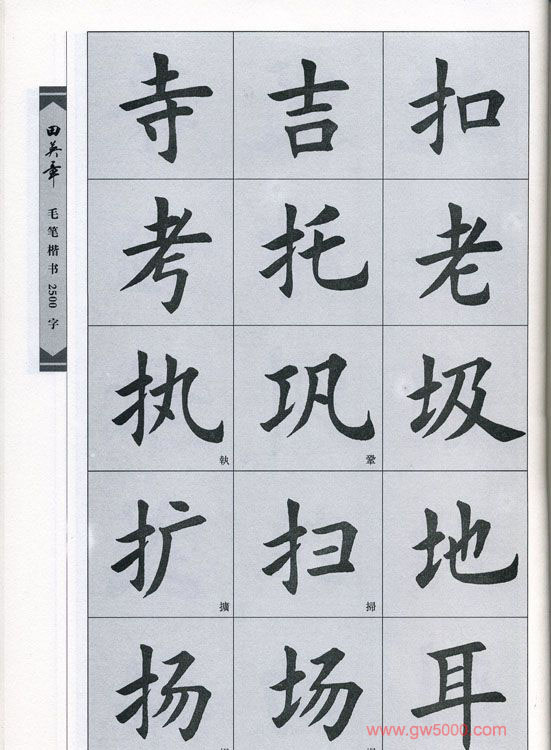 田英章 毛笔楷书 2500 字
寺 吉 扣
考 托 老
执 巩 圾
執 鞏
扩 扫 地
擴 掃
扬 场 耳
www.gw5000.com